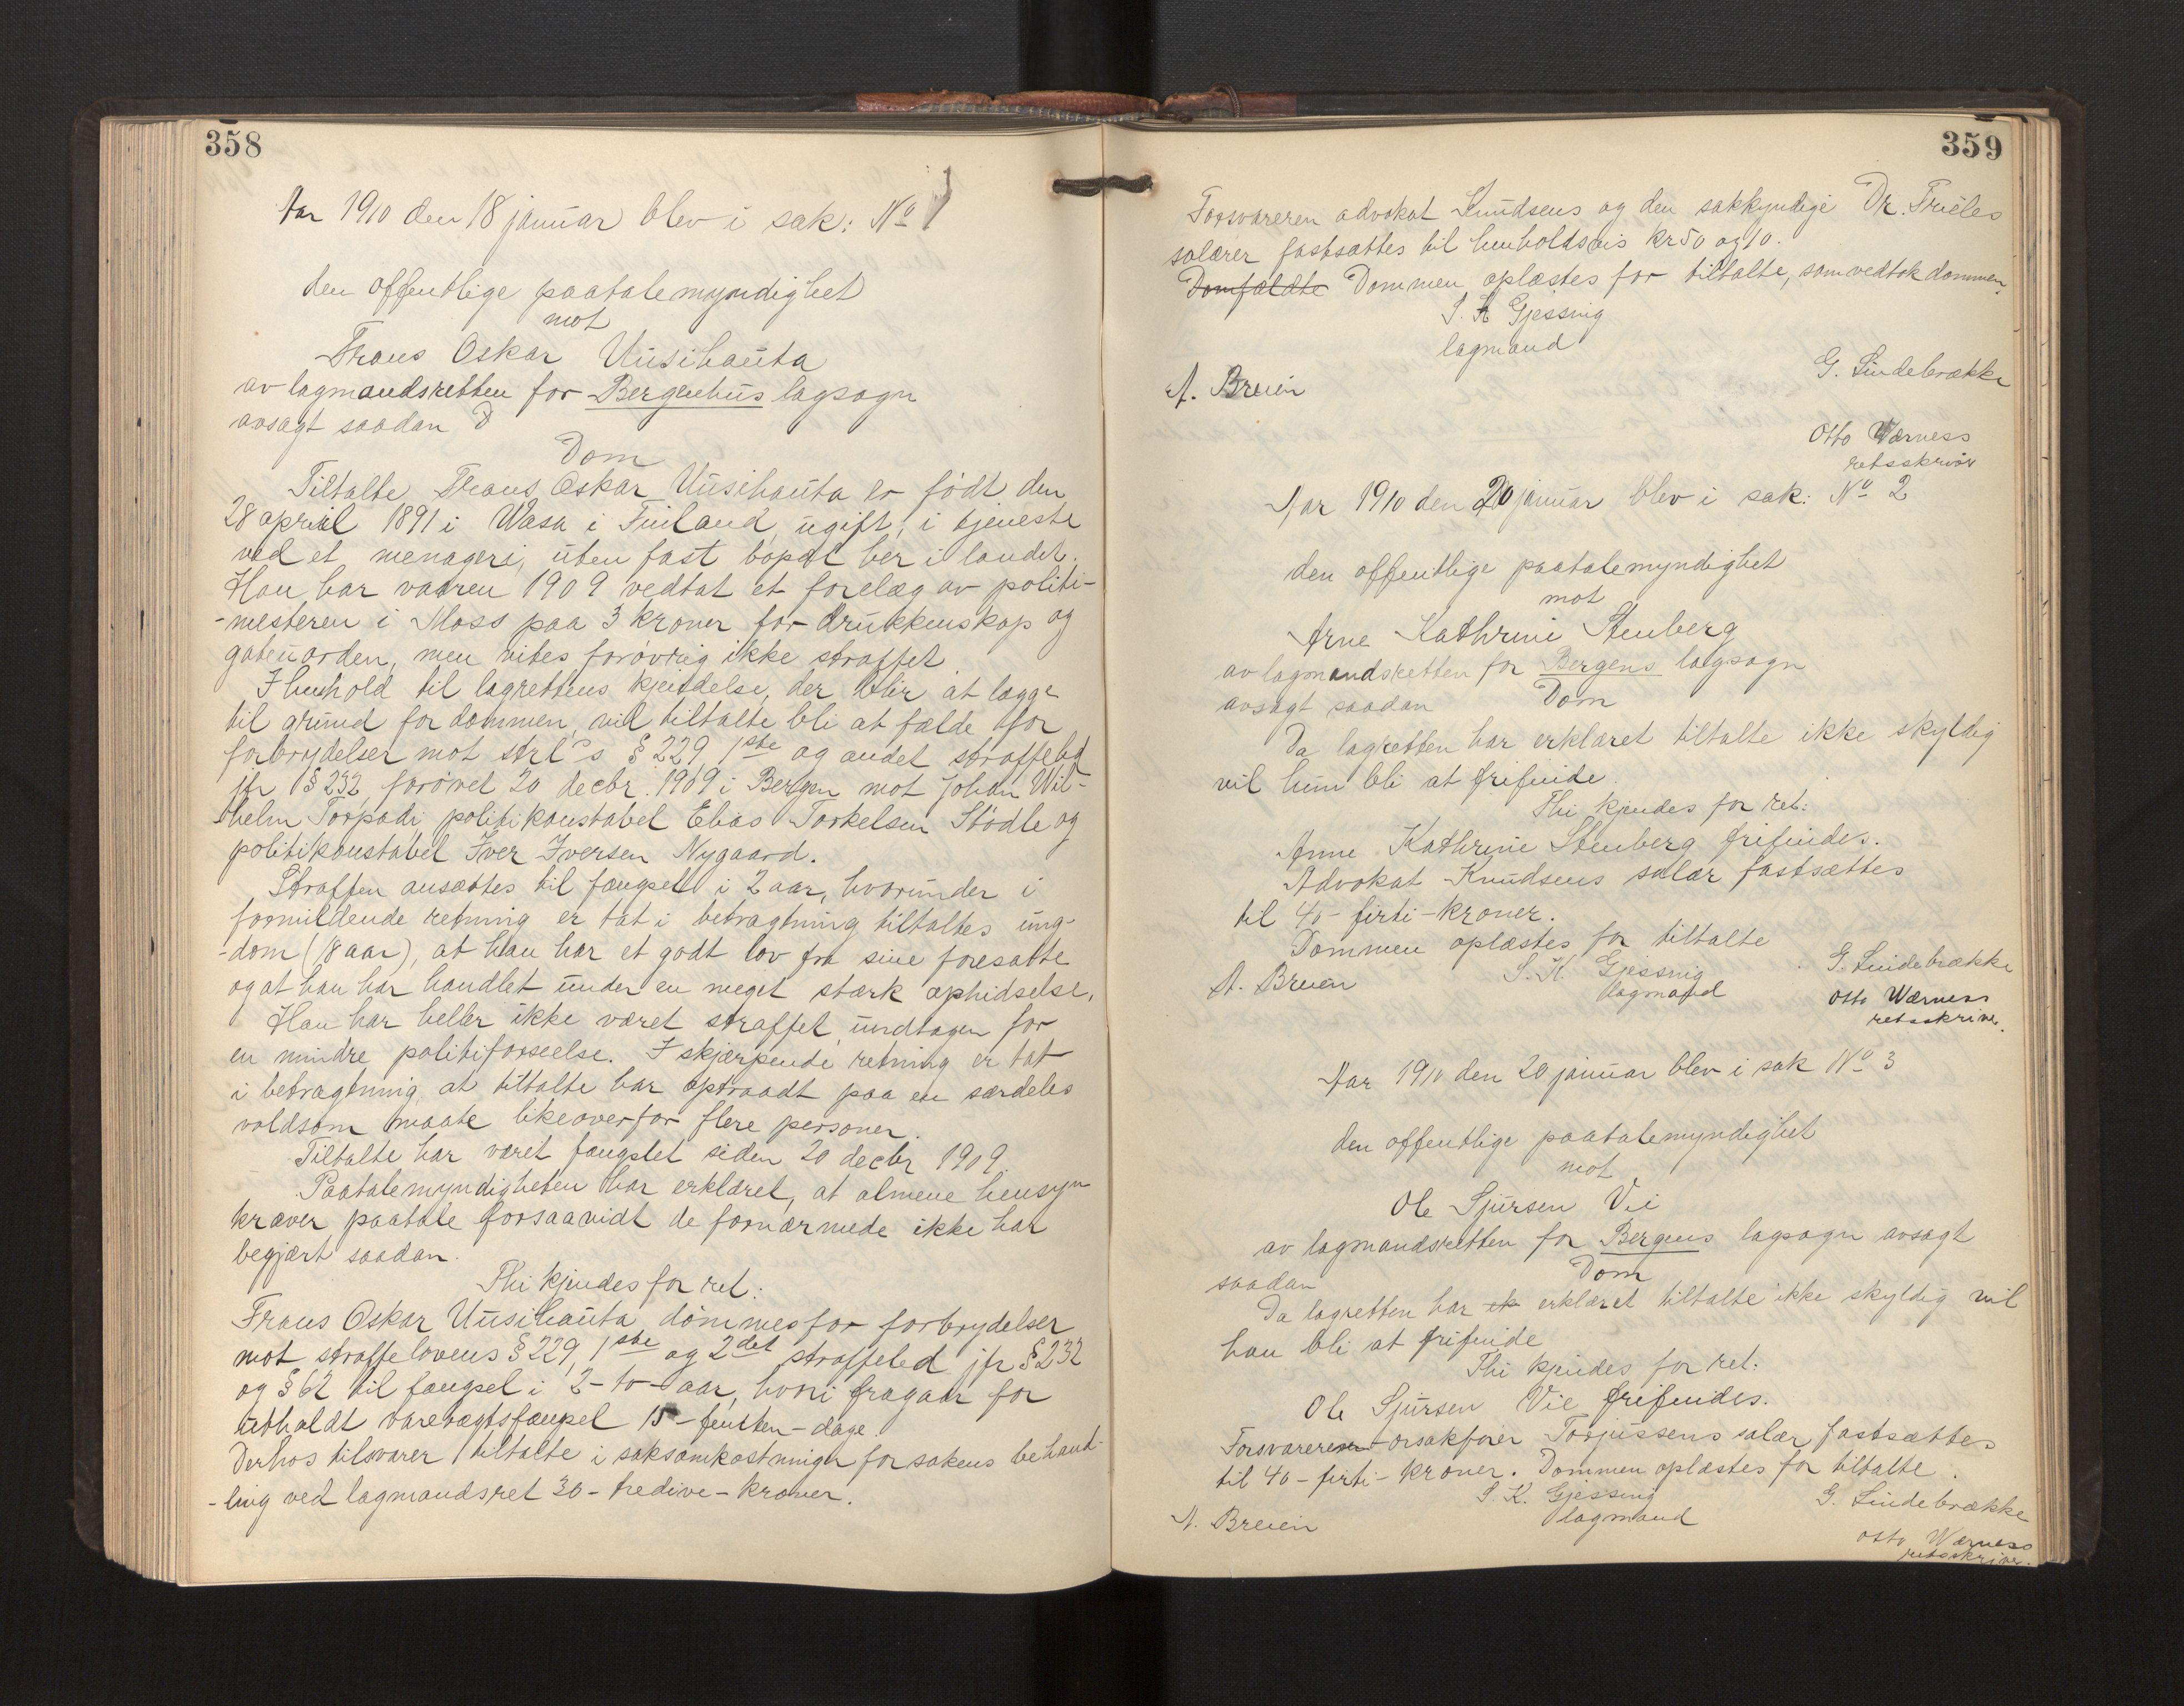 358
Aar 1910 den 18 januar blev i sak: No 1
den offentlige paatalemyndighet
mot
Frans Oskar Uusihauta
av lagmandsretten for Bergenhus lagsogn
avsagt saadan D
Dom
Tiltalte Frans Oskar Uusihauta er født den
28 april 1891 i Wasa i Finland, ugift, i tjeneste
ved et menageri, uten fast bopæl her i landet.
Han har vaaren 1909 vedtat et forelæg av politi-
-mesteren i Moss paa 3 kroner for drukkenskap og
gateuorden, men vites forøvrig ikke straffet.
I henhold til lagrettens kjendelse, der blir at lægge
til grund for dommen, vil tiltalte bli at fælde for
forbrydelser mot strl's § 229, 1ste og andet straffeled
jfr § 232, forøvet 20 decbr. 1909 i Bergen mot Johan Wil-
-helm Torpadi, politikonstabel Elias Torkelsen Stødle og
politikonstabel Iver Iversen Nygaard.
Straffen ansættes til fængsel i 2 aar, hvorunder i
formildende retning er tat i betragtning tiltaltes ung-
-dom (18 aar), at han har et godt lov fra sine foresatte
og at han har handlet under en meget stærk ophidselse.
Han har heller ikke været straffet undtagen for
en mindre politiforseelse. I skjærpende retning er tat
i betragtning, at tiltalte har optraadt paa en særdeles
voldsom maate likeoverfor flere personer.
Tiltalte har været fængslet siden 20 decbr 1909.
Paatalemyndigheten har erklæret, at almene hensyn
kræver paatale forsaavidt de fornærmede ikke har
begjært saadan.
Thi kjendes for ret:
Frans Oskar Uusihauta dømmes for forbrydelser
mot straffelovens § 229, 1ste og 2det straffeled jfr § 232
og § 62 til fængsel i 2-to-aar, hvori fragaar for
utholdt varetægtsfængsel 15-femten-dage.
Derhos tilsvarer tiltalte i saksomkostninger for sakens behand-
-ling ved lagmandsret 30-tredive-kroner.
359
Forsvareren advokat Knudsens og den sakkyndige Dr. Frieles
salærer fastsættes til henholdsvis kr 50 og 10.
Domfældte Dommen oplæstes for tiltalte, som vedtok dommen.
S. K Gjessing
lagmand
G. Lindebrække
A. Breien
Otto Wærness
retsskriver
Aar 1910 den 20 januar blev i sak: No 2
den offentlige paatalemyndighet
mot
Arne Kathrine Stenberg
av lagmandsretten for Bergens lagsogn
avsagt saadan Dom
Da lagretten har erklæret tiltalte ikke skyldig
vil hun bli at frifinde.
Thi kjendes for ret:
Anne Kathrine Stenberg frifindes.
Advokat Knudsens salær fastsættes
til 40-firti-kroner.
Dommen oplæstes for tiltalte
A. Breien S. K. Gjessing G. Lindebrække
lagmand Otto Wærness
retsskriver.
Aar 1910 den 20 januar blev i sak No 3
den offentlige paatalemyndighet
mot
Ole Sjursen Vie
av lagmandsretten for Bergens lagsogn avsagt
saadan Dom
Da lagretten har ek erklæret tiltalte ikke skyldig vil
han bli at frifinde
Thi kjendes for ret:
Ole Sjursen Vie frifindes.
Forsvareren orsakfører Torjussens salær fastsættes
til 40-firti-kroner. Dommen oplæstes for tiltalte.
S. K. Gjessing G. Lindebrække
A. Breien lagmand
Otto Wærness
retsskriver.